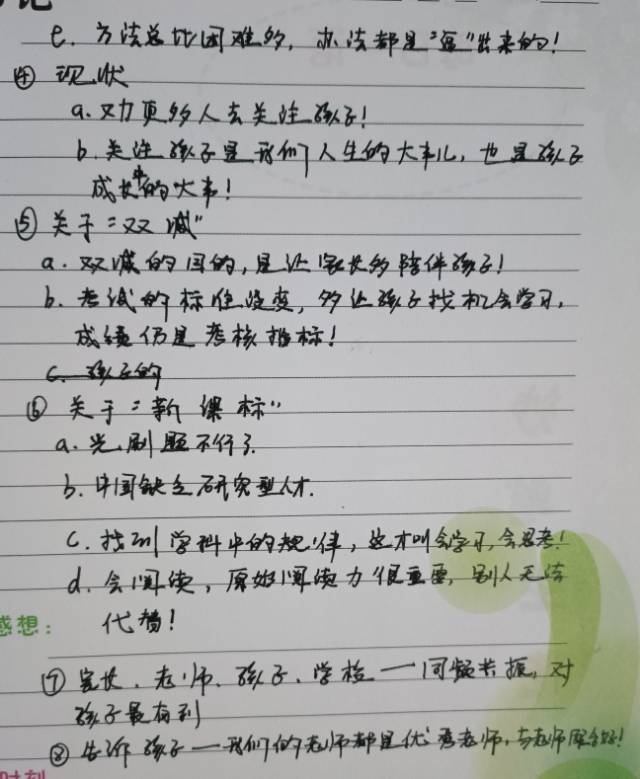 e. 方法总比困难多，办法都是"逼"出来的！
④ 现状
a. 又有更多人去关注孩子！
b. 关注孩子是我们人生的大事儿，也是孩子
成长中的大事！
⑤ 关于"双减"
a. 双减的目的，是让家长多陪伴孩子！
b. 考试的标准没变，多让孩子找机会学习，
成绩仍是考核指标！
c. 孩子的
⑥ 关于"新课标"
a. 光刷题不行了.
b. 中国缺乏研究型人才.
c. 找到学科中的规律，这才叫会学习，会思考！
d. 会阅读，原始阅读力很重要，别人无法
感想： 代替！
⑦ 家长、老师、孩子、学校——同频共振，对
孩子最有利
⑧ 告诉孩子——我们的老师都是优秀老师，与老师
时刻